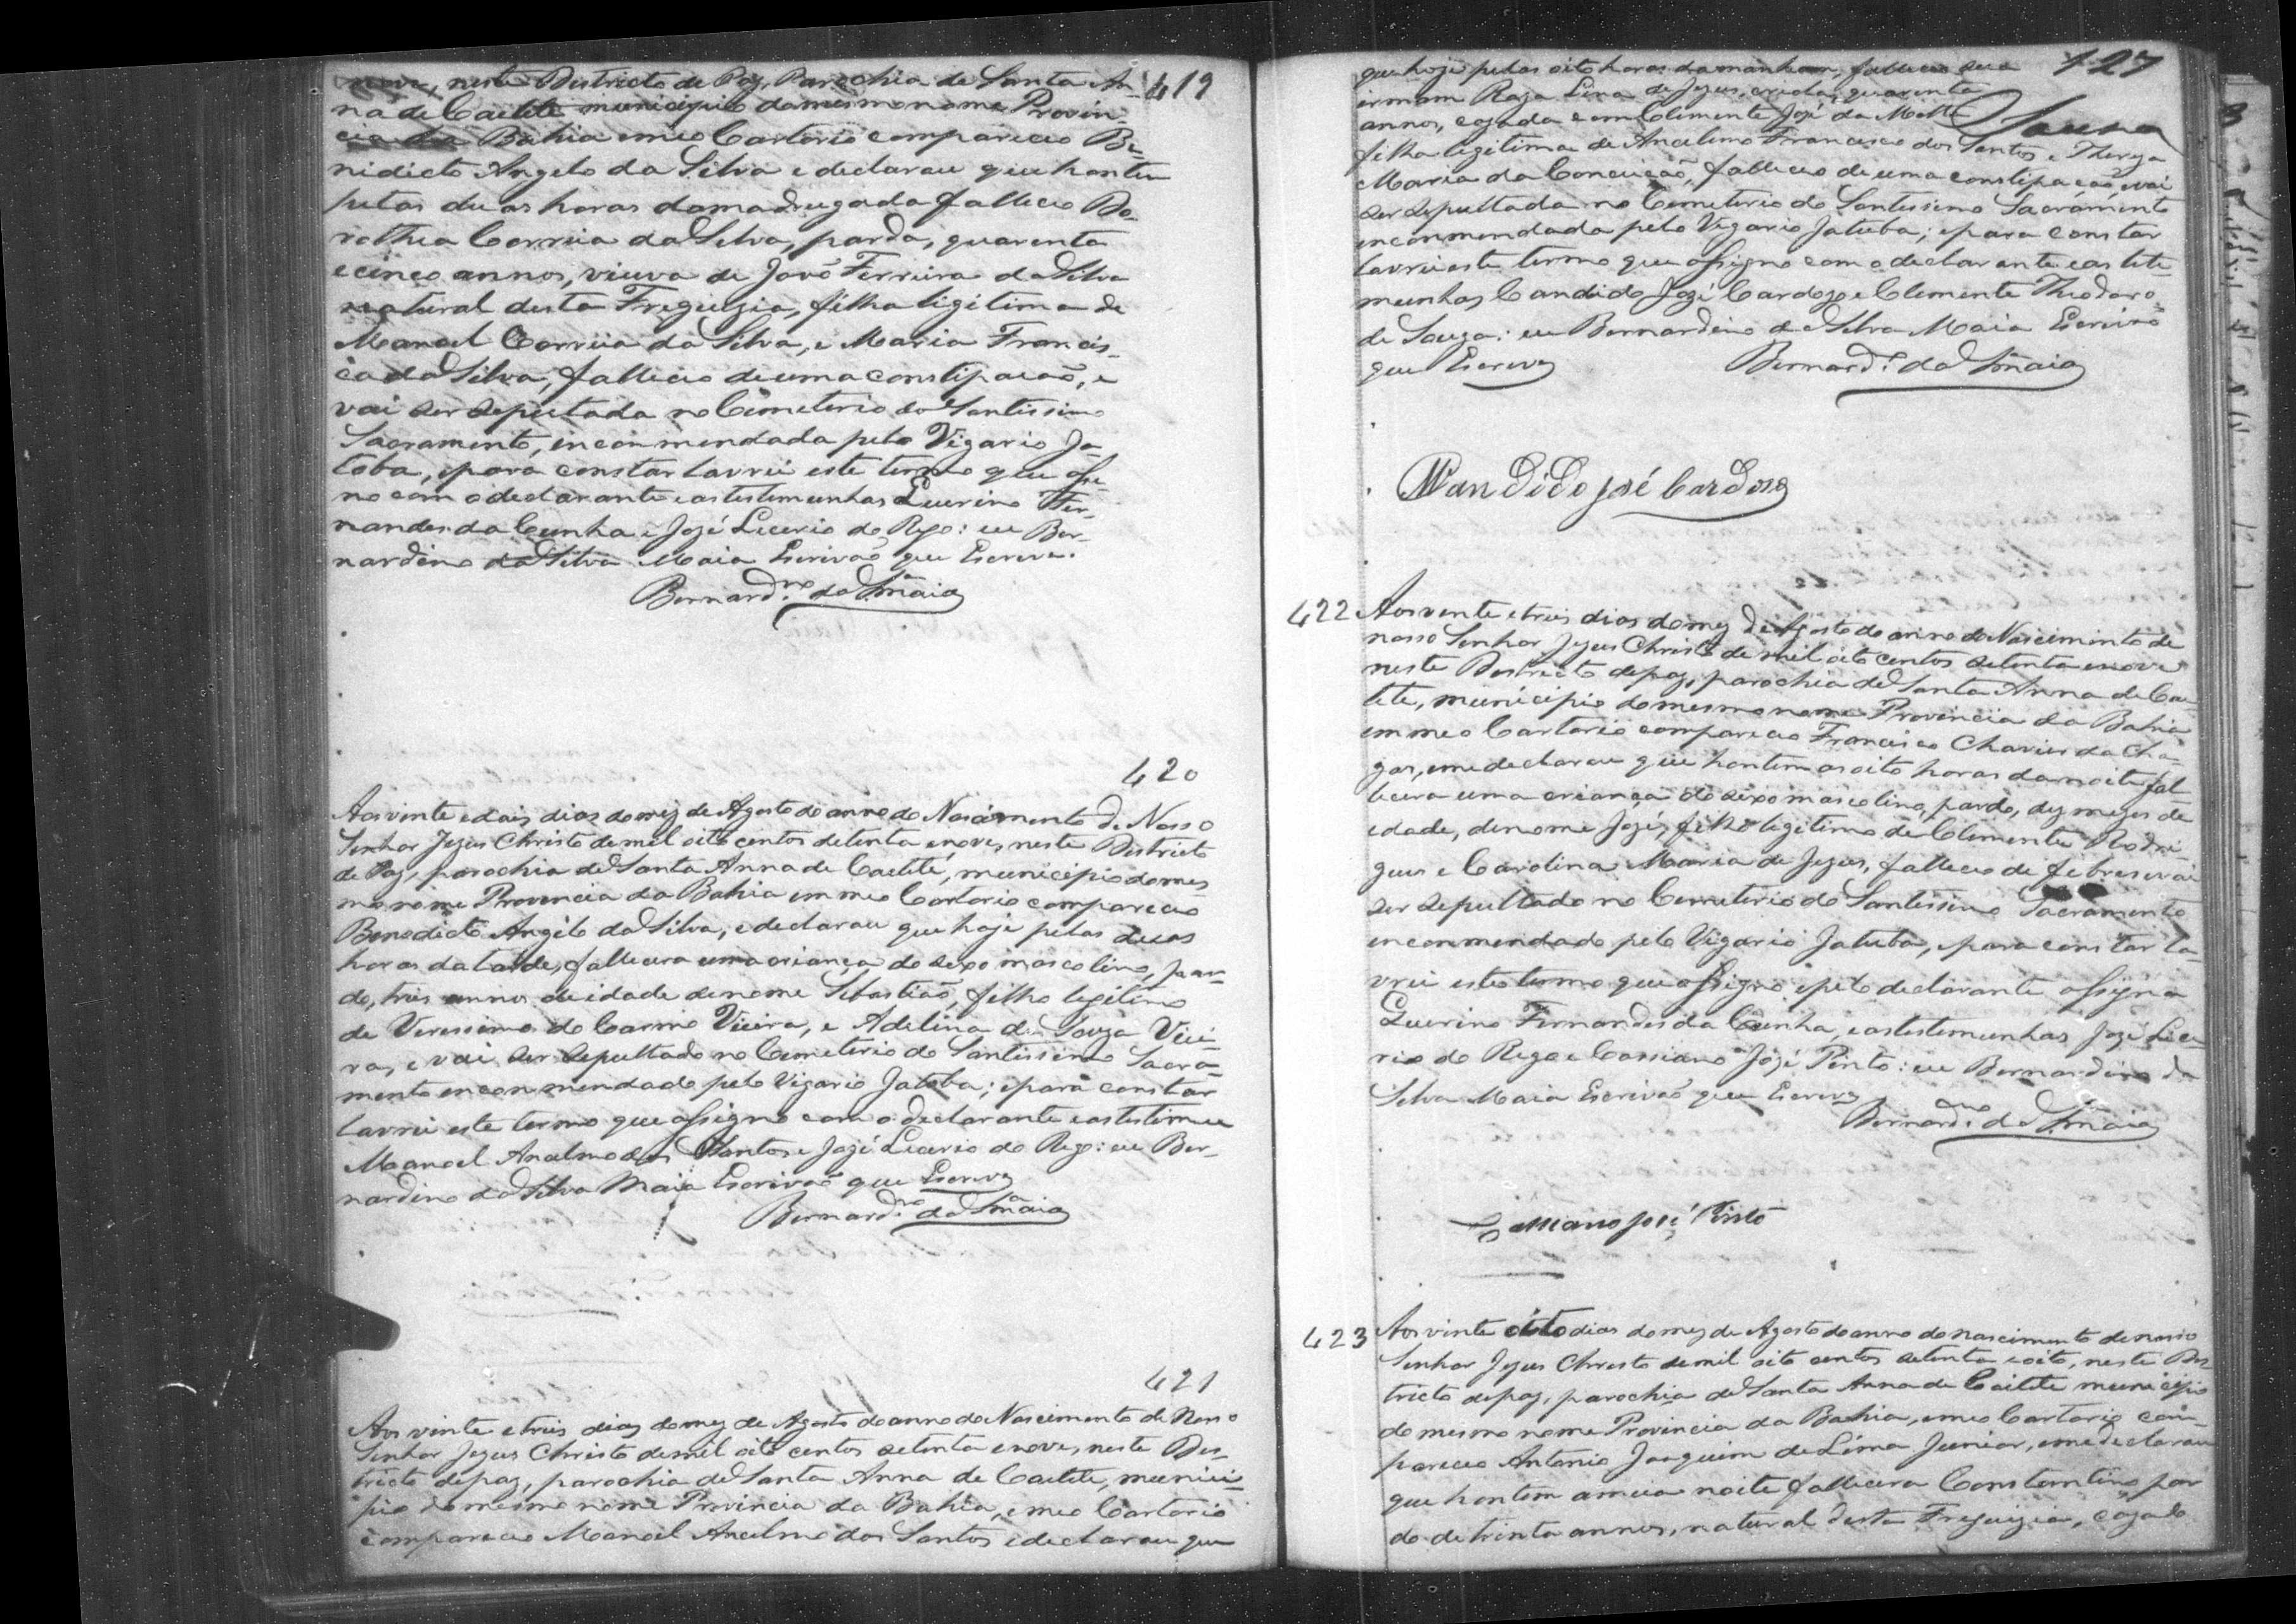 neste Destricto de Paz, Parochia de Santa An- 419
na de Caeteté municipio do mesmo nome Provin-
cia da Bahia em meo Cartorio compareceo Be-
nidicto Angelo da Silva e declarou que hontem
pelas duas horas da madrugada falleceo Do-
rothea Correia da Silva, parda, quarenta
e cinco annos, viuva de João Ferreira da Silva
natural desta Freguezia, filha ligitima de
Manoel Correia da Silva, e Maria Francis-
ca da Silva, falleceo de uma constipação, e
vai ser sepultada no Cimeterio do Santissimo
Sacramento, inconmendada pelo Vigario Ja-
toba, e para constar lavrei este termo que assi-
no com o declarante e as testemunhas Querino Fer-
nandes da Cunha e José Licerio do Rego: eu Ber-
nardino da Silva Maia Escrivão que Escrevi.
Bernard.no da S.a Maia
420
Aos vinte e dois dias do mez de Agosto do anno do Nascimento de Nosso
Senhor Jezus Christo de mil oito centos setenta e nove, neste Districto
de Paz, parochia de Santa Anna de Caeteté, municipio do mes
mo nome Provincia da Bahia em meo Cartorio compareceo
Benedicto Angelo da Silva, e declarou que hoje pelas duas
horas da tarde, fallecera uma criança do sexo mascolino, par-
do, tres annos de idade de nome Sebastião, filho legitimo
de Verissimo do Carmo Vieira, e Adelina de Souza Viei-
ra, e vai ser sepultado no Cemeterio do Santissimo Sacra-
mento enconmendado pelo Vigario Jatoba; e para constar
lavrei este termo que assigno com o declarante e as testimu
Manoel Ancelmo dos Santos e Jozé Licerio do Rego: eu Ber-
nardino da Silva Maia Escrivão que Escrevi
Bernard.no da S.a Maia
421
Aos vinte e tres dias do mez de Agosto do anno do Nascimento de Nosso
Senhor Jezus Christo de mil oito centos setenta e nove, neste Des-
tricto de paz, parochia de Santa Anna de Caeteté, munici-
pio do mesmo nome Provincia da Bahia, e meo Cartorio
compareceo Manoel Ancelmo dos Santos e declarou que
que hoje pelas oito horas da manham, falleceo sua 127
irmam Roza Lina de Jezus, creola, quarenta
annos, cazada com Clemente José da Motta Souza
filha legitima de Ancelmo Francisco dos Santos e Thereza
Maria da Conceição, falleceo de uma constipação, e vai
ser sepultada no Cemeterio do Santissimo Sacramento
enconmendada pelo Vigario Jatuba; e para constar
lavrei este termo que assigno com o declarante e as teste-
munhas Candido José Cardozo e Clemente Theodoro
de Souza: eu Bernardino da Silva Maia Escrivão
que Escrevi Bernard.o da S.a Maia
Candido José Cardoso
422 Aos vente e tres dias do mez de Agosto do anno do Nascimento de
nosso Senhor Jezus Christo de mil oito centos setenta e nove
neste Destricto de paz, parochia de Santa Anna de Cae
teté, municipio do mesmo nome Provincia da Bahia
em meo Cartorio compareceo Francisco Chavier da Cha-
gas, e me declarou que hontem as oito horas da noite fal
lecera uma criança do sexo mascolino, pardo, dez mezes de
idade, de nome José, filho legitimo de Clemente Rodri-
gues e Carolina Maria de Jezus, falleceo de febres e vai
ser sepultado no Cemeterio do Santissimo Sacramento
enconmendado pelo Vigario Jatuba, e para constar la-
vrei este termo que assigno e pelo declarante assigna
Querino Fernandes da Cunha, e as testemunhas José Lice-
rio do Rego e Cassiano José Pinto: eu Bernardino da
Silva Maia Escrivão que Escrevi
Bernard.no da S.a Maia
Cassiano José Pinto
423 Aos vinte oito dias do mez de Agosto do anno do nascimento de nosso
Senhor Jezus Christo de mil oito centos setenta e oito, neste Des-
tricto de paz, parochia de Santa Anna de Caiteté municipio
do mesmo nome Provincia da Bahia, e meo Cartorio com-
pareceo Antonio Joaquim de Lima Junior, e me declarou
que hontem a meia noite fallecera Constantino par
do de trinta annos, natural desta Freguizia, cazado